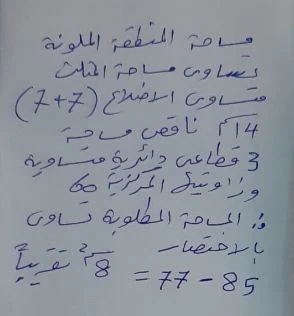 مساحة المنطقة الملونة
تساوى مساحة المثلث
متساوى الاضلاع (7+7)
14سم ناقص مساحة
3 قطاعى دائرية متساوية
وزاويتها المركزية 60
المساحة المطلوبة تساوى
بالاختصار
85 - 77 = 8سم² تقريباً